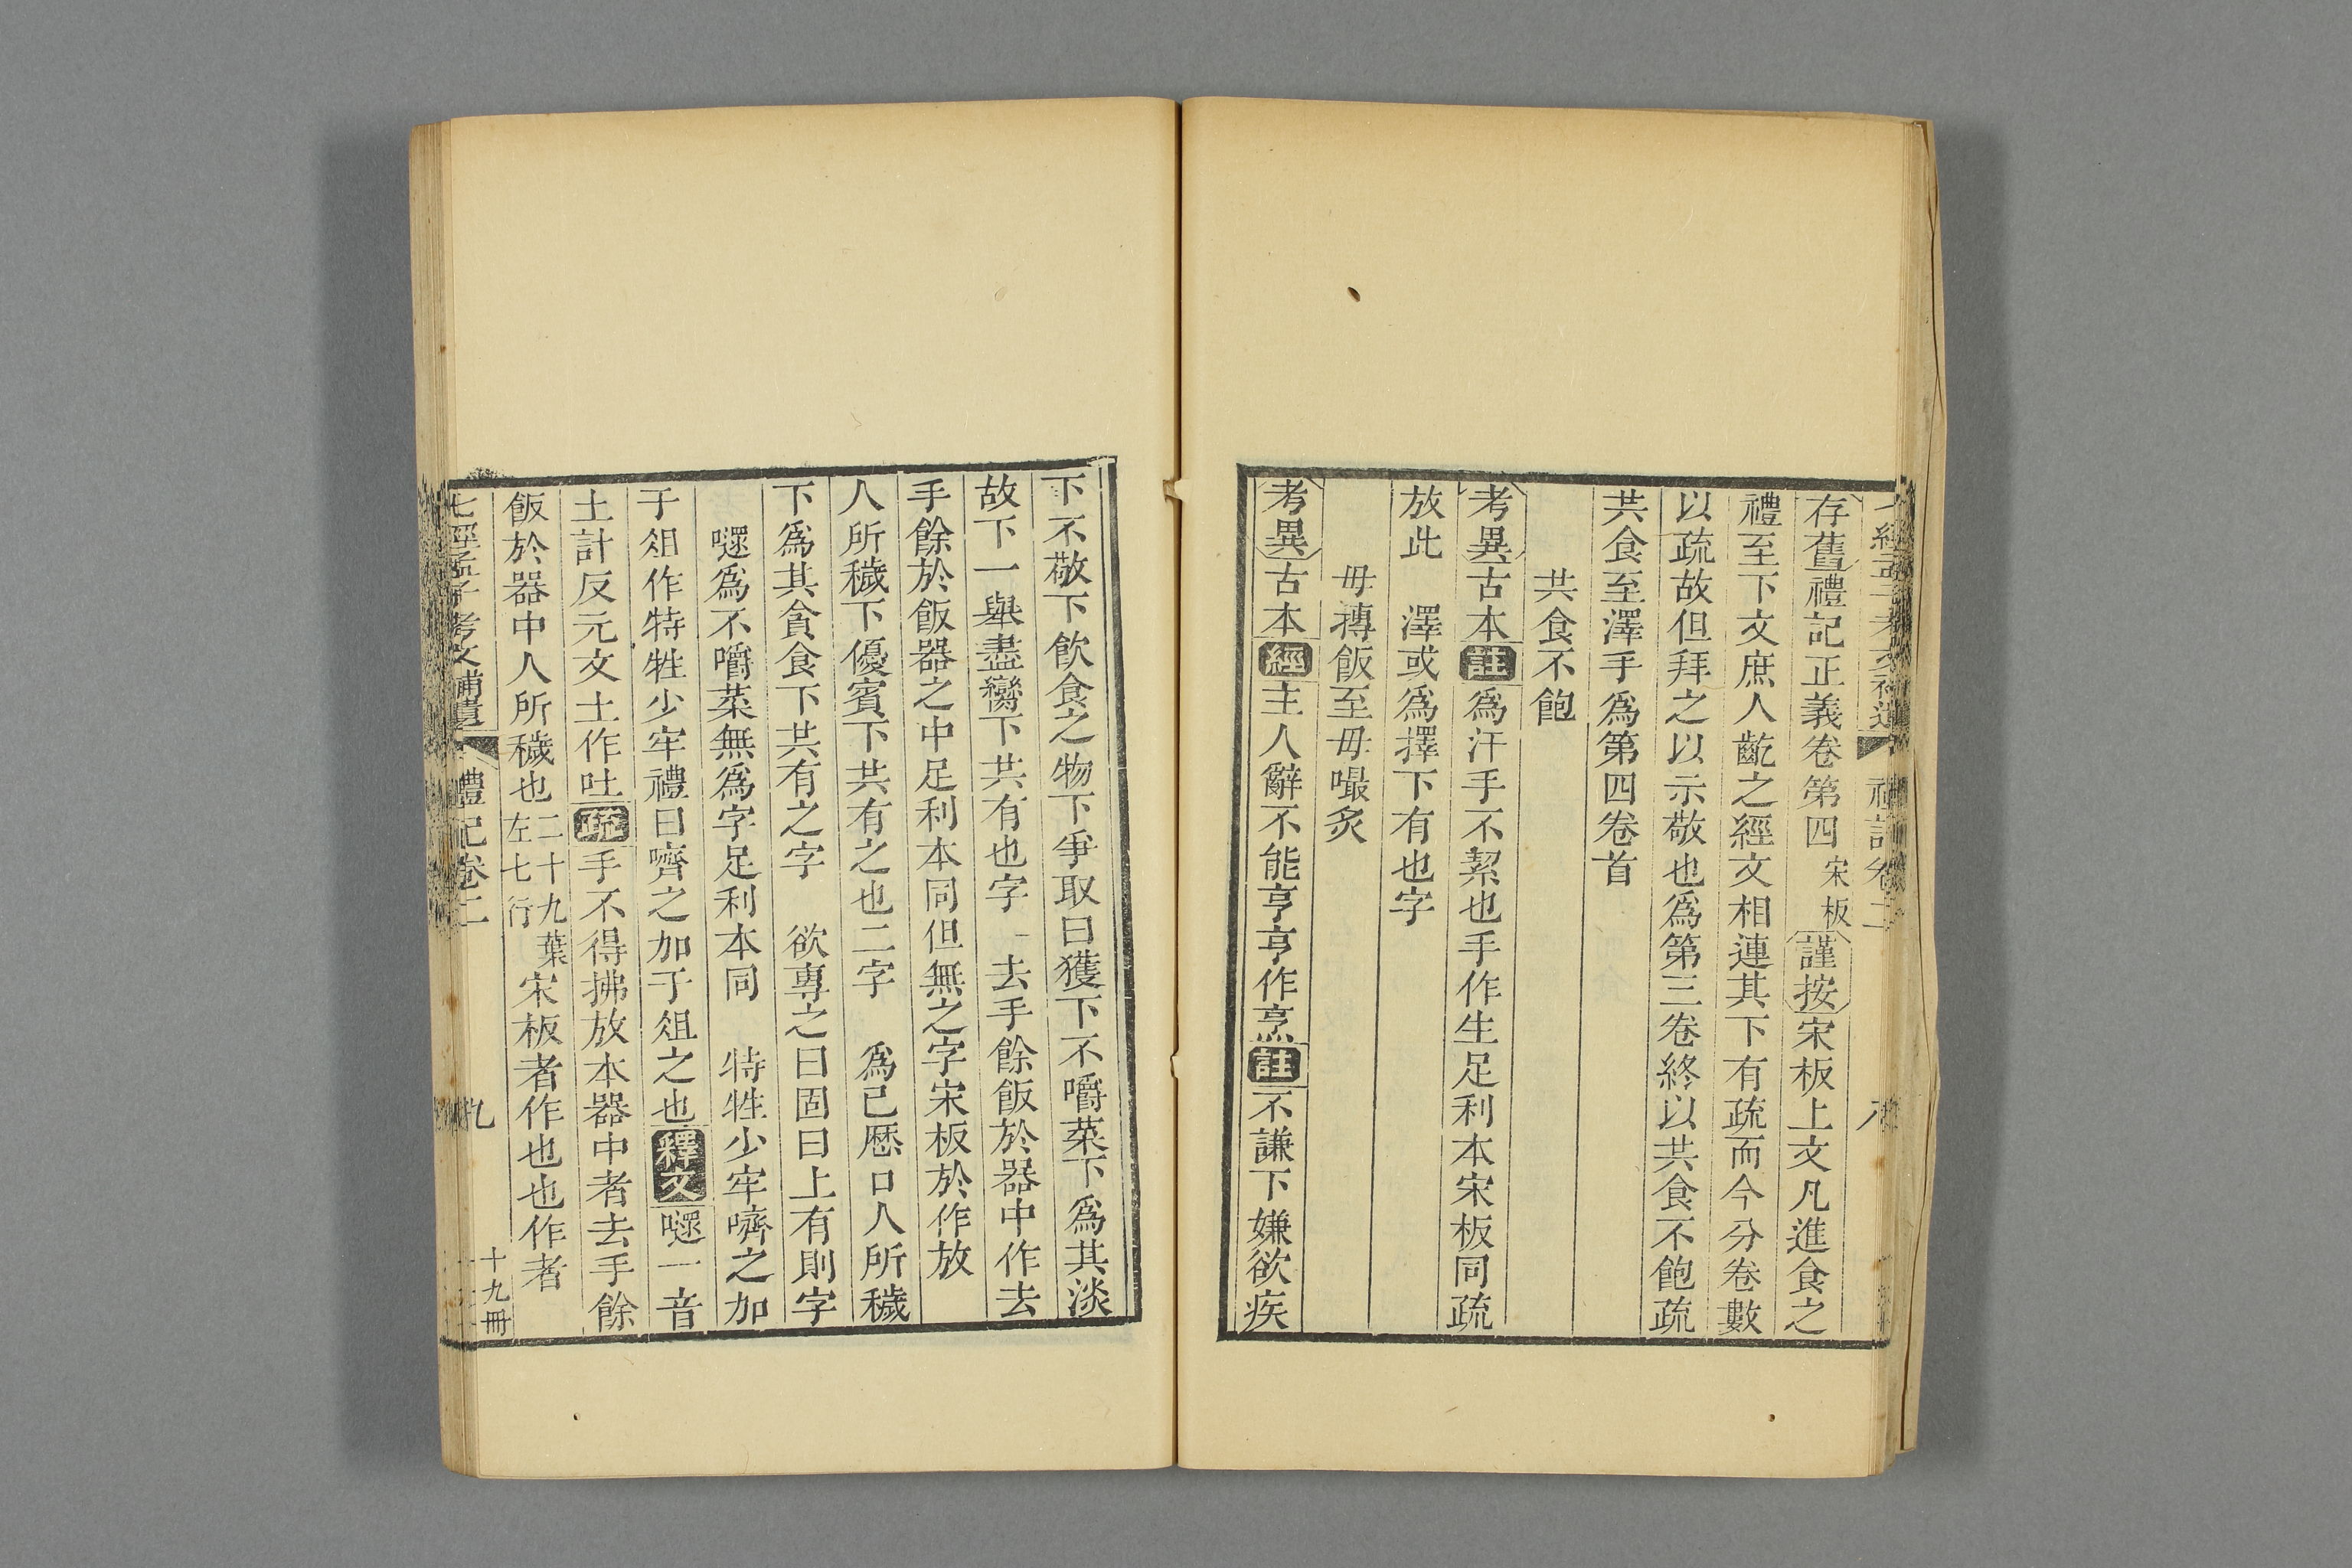 七經孟子考文補遺 禮記卷二 八
存舊禮記正義卷第四宋板謹按宋板上文凡進食之
禮至下文庶人齕之經文相連其下有疏而今分卷數
以疏故但拜之以示敬也爲第三卷終以共食不飽疏
共食至澤手爲第四卷首
共食不飽
考異古本註爲汗手不絜也手作生足利本宋板同疏
放此 澤或爲擇下有也字
毋摶飯至毋嘬炙
考異古本經主人辭不能亨亨作烹註不謙下嫌欲疾
下不敬下飲食之物下爭取曰獲下不嚼菜下爲其淡
故下一舉盡臠下共有也字 去手餘飯於器中作去
手餘於飯器之中足利本同但無之字宋板於作放
人所穢下優賓下共有之也二字 爲已歷口人所穢
下爲其貪食下共有之字 欲專之曰固曰上有則字
嚃爲不嚼菜無爲字足利本同 特牲少牢嚌之加
于俎作特牲少牢禮曰嚌之加于俎之也釋文嚃一音
土計反元文土作吐疏手不得拂放本器中者去手餘
飯於器中人所穢也二十九葉左七行宋板者作也也作者
七經孟子考文補遺 禮記卷二 九 十九冊